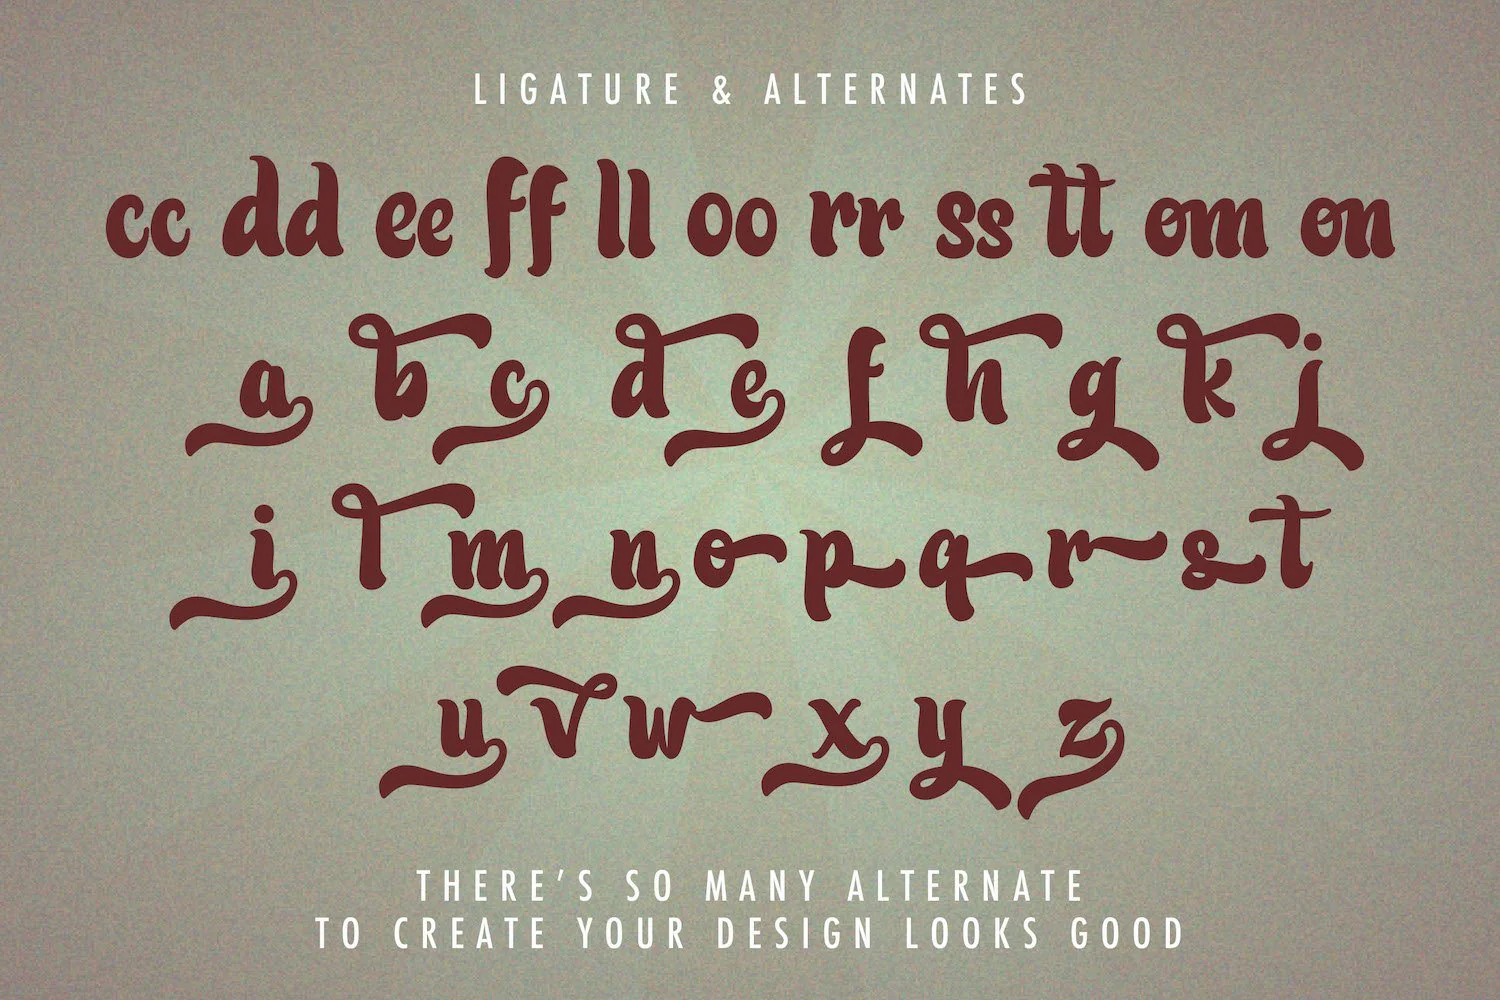 LIGATURE & ALTERNATES
cc dd ee ff ll oo rr ss tt om on
a b c d e f h g k j
i l m n o p q r s t
u v w x y z
THERE'S SO MANY ALTERNATE
TO CREATE YOUR DESIGN LOOKS GOOD